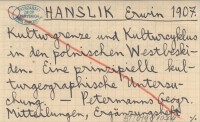 HANSLIK Erwin 1907.
Kulturgrenze und Kulturzyklus
in den polnischen Westbeski-
den. Eine prinzipielle kul-
turgeographische Untersu-
chung. — Petermanns Geogr.
Mitteilungen, Ergänzungsheft